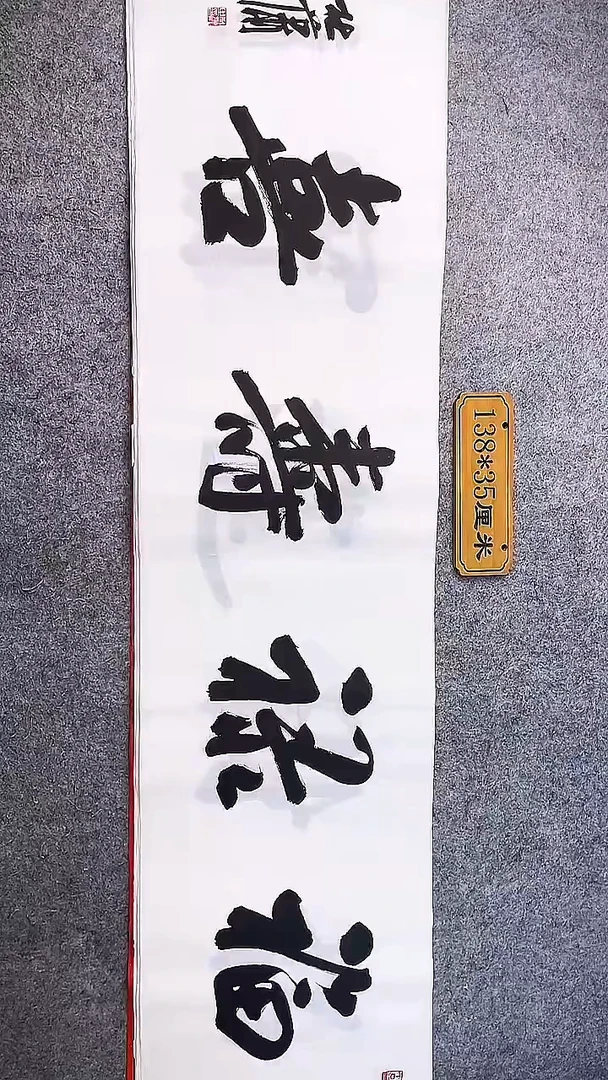 福禄壽喜
138*35厘米